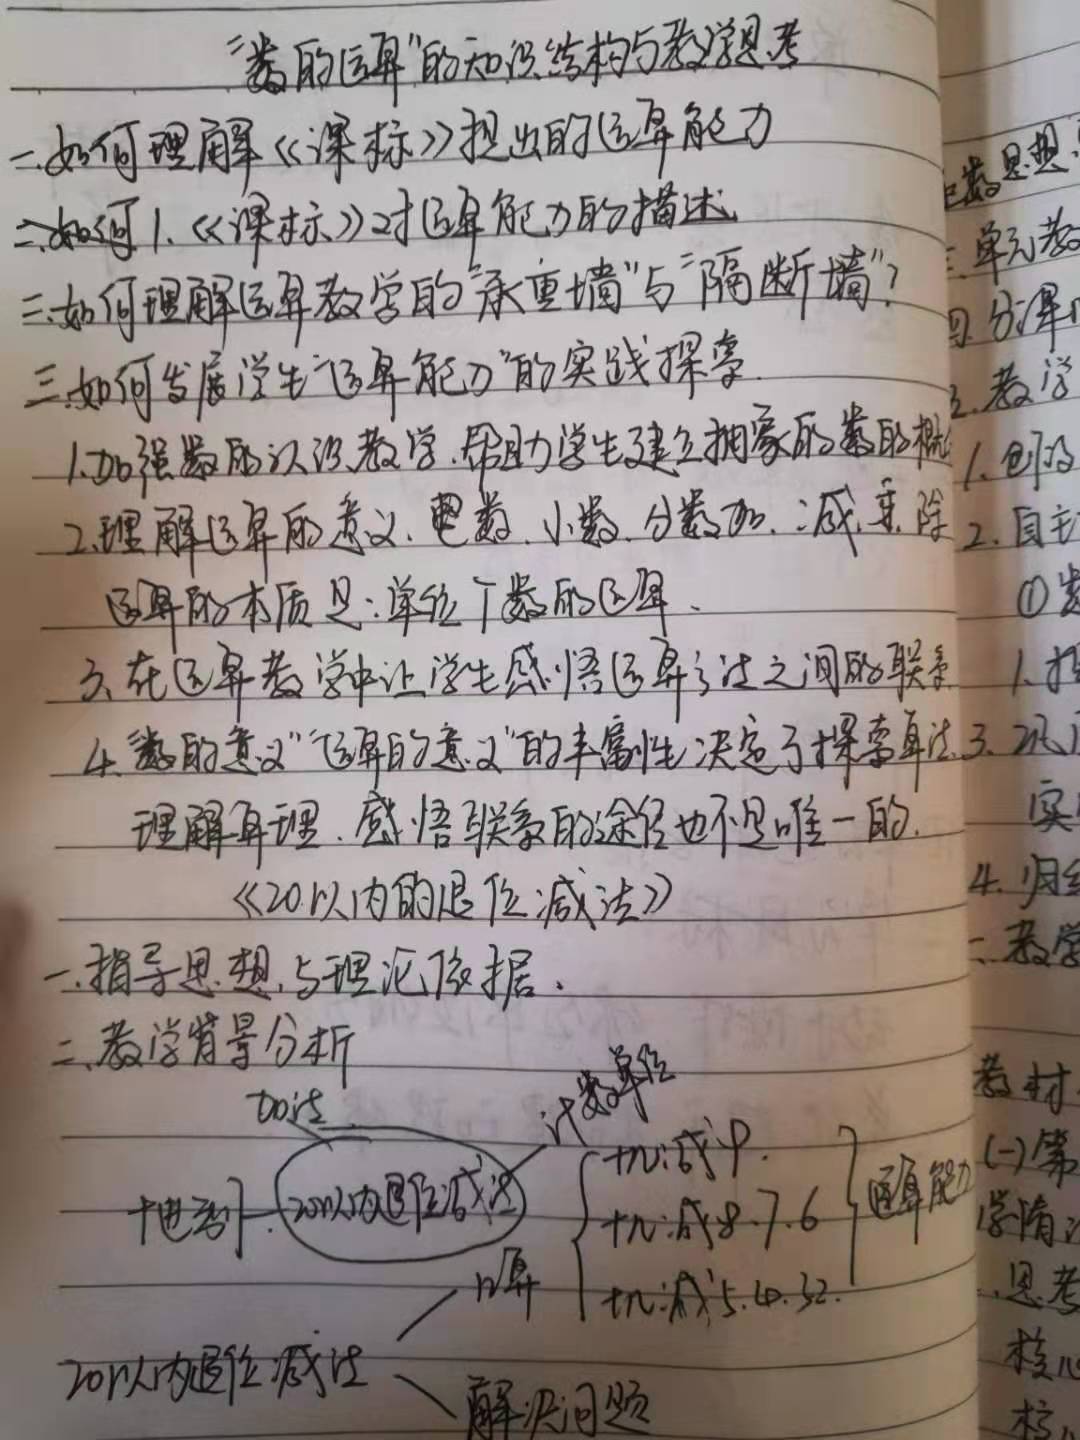 “数的运算”的知识结构与教学思考
一.如何理解《课标》提出的运算能力
二.如何1.《课标》对运算能力的描述
二.如何理解运算教学的“承重墙”与“隔断墙”?
三.如何发展学生“运算能力”的实践探索.
1.加强数的认识教学.帮助学生建立抽象的数的概
2.理解运算的意义.整数.小数.分数加.减.乘.除
运算的本质是:单位个数的运算.
3.在运算教学中让学生感悟运算方法之间的联系
4.“数的意义”“运算的意义”的丰富性决定了探索算法.
理解算理.感悟联系的途径也不是唯一的.
《20以内的退位减法》
一.指导思想与理论依据.
二.教学背景分析
加法
计数单位
20以内退位减法
十几减9.
十几减8.7.6
十几减5.4.3.2.
运算能力
口算
20以内退位减法
解决问题
数思想
单元教
四.分课
教学
1.创设
2.自主
①
1.
3.
实
4.归
二.教学
教材
(一)第
学情
思考
核心
核